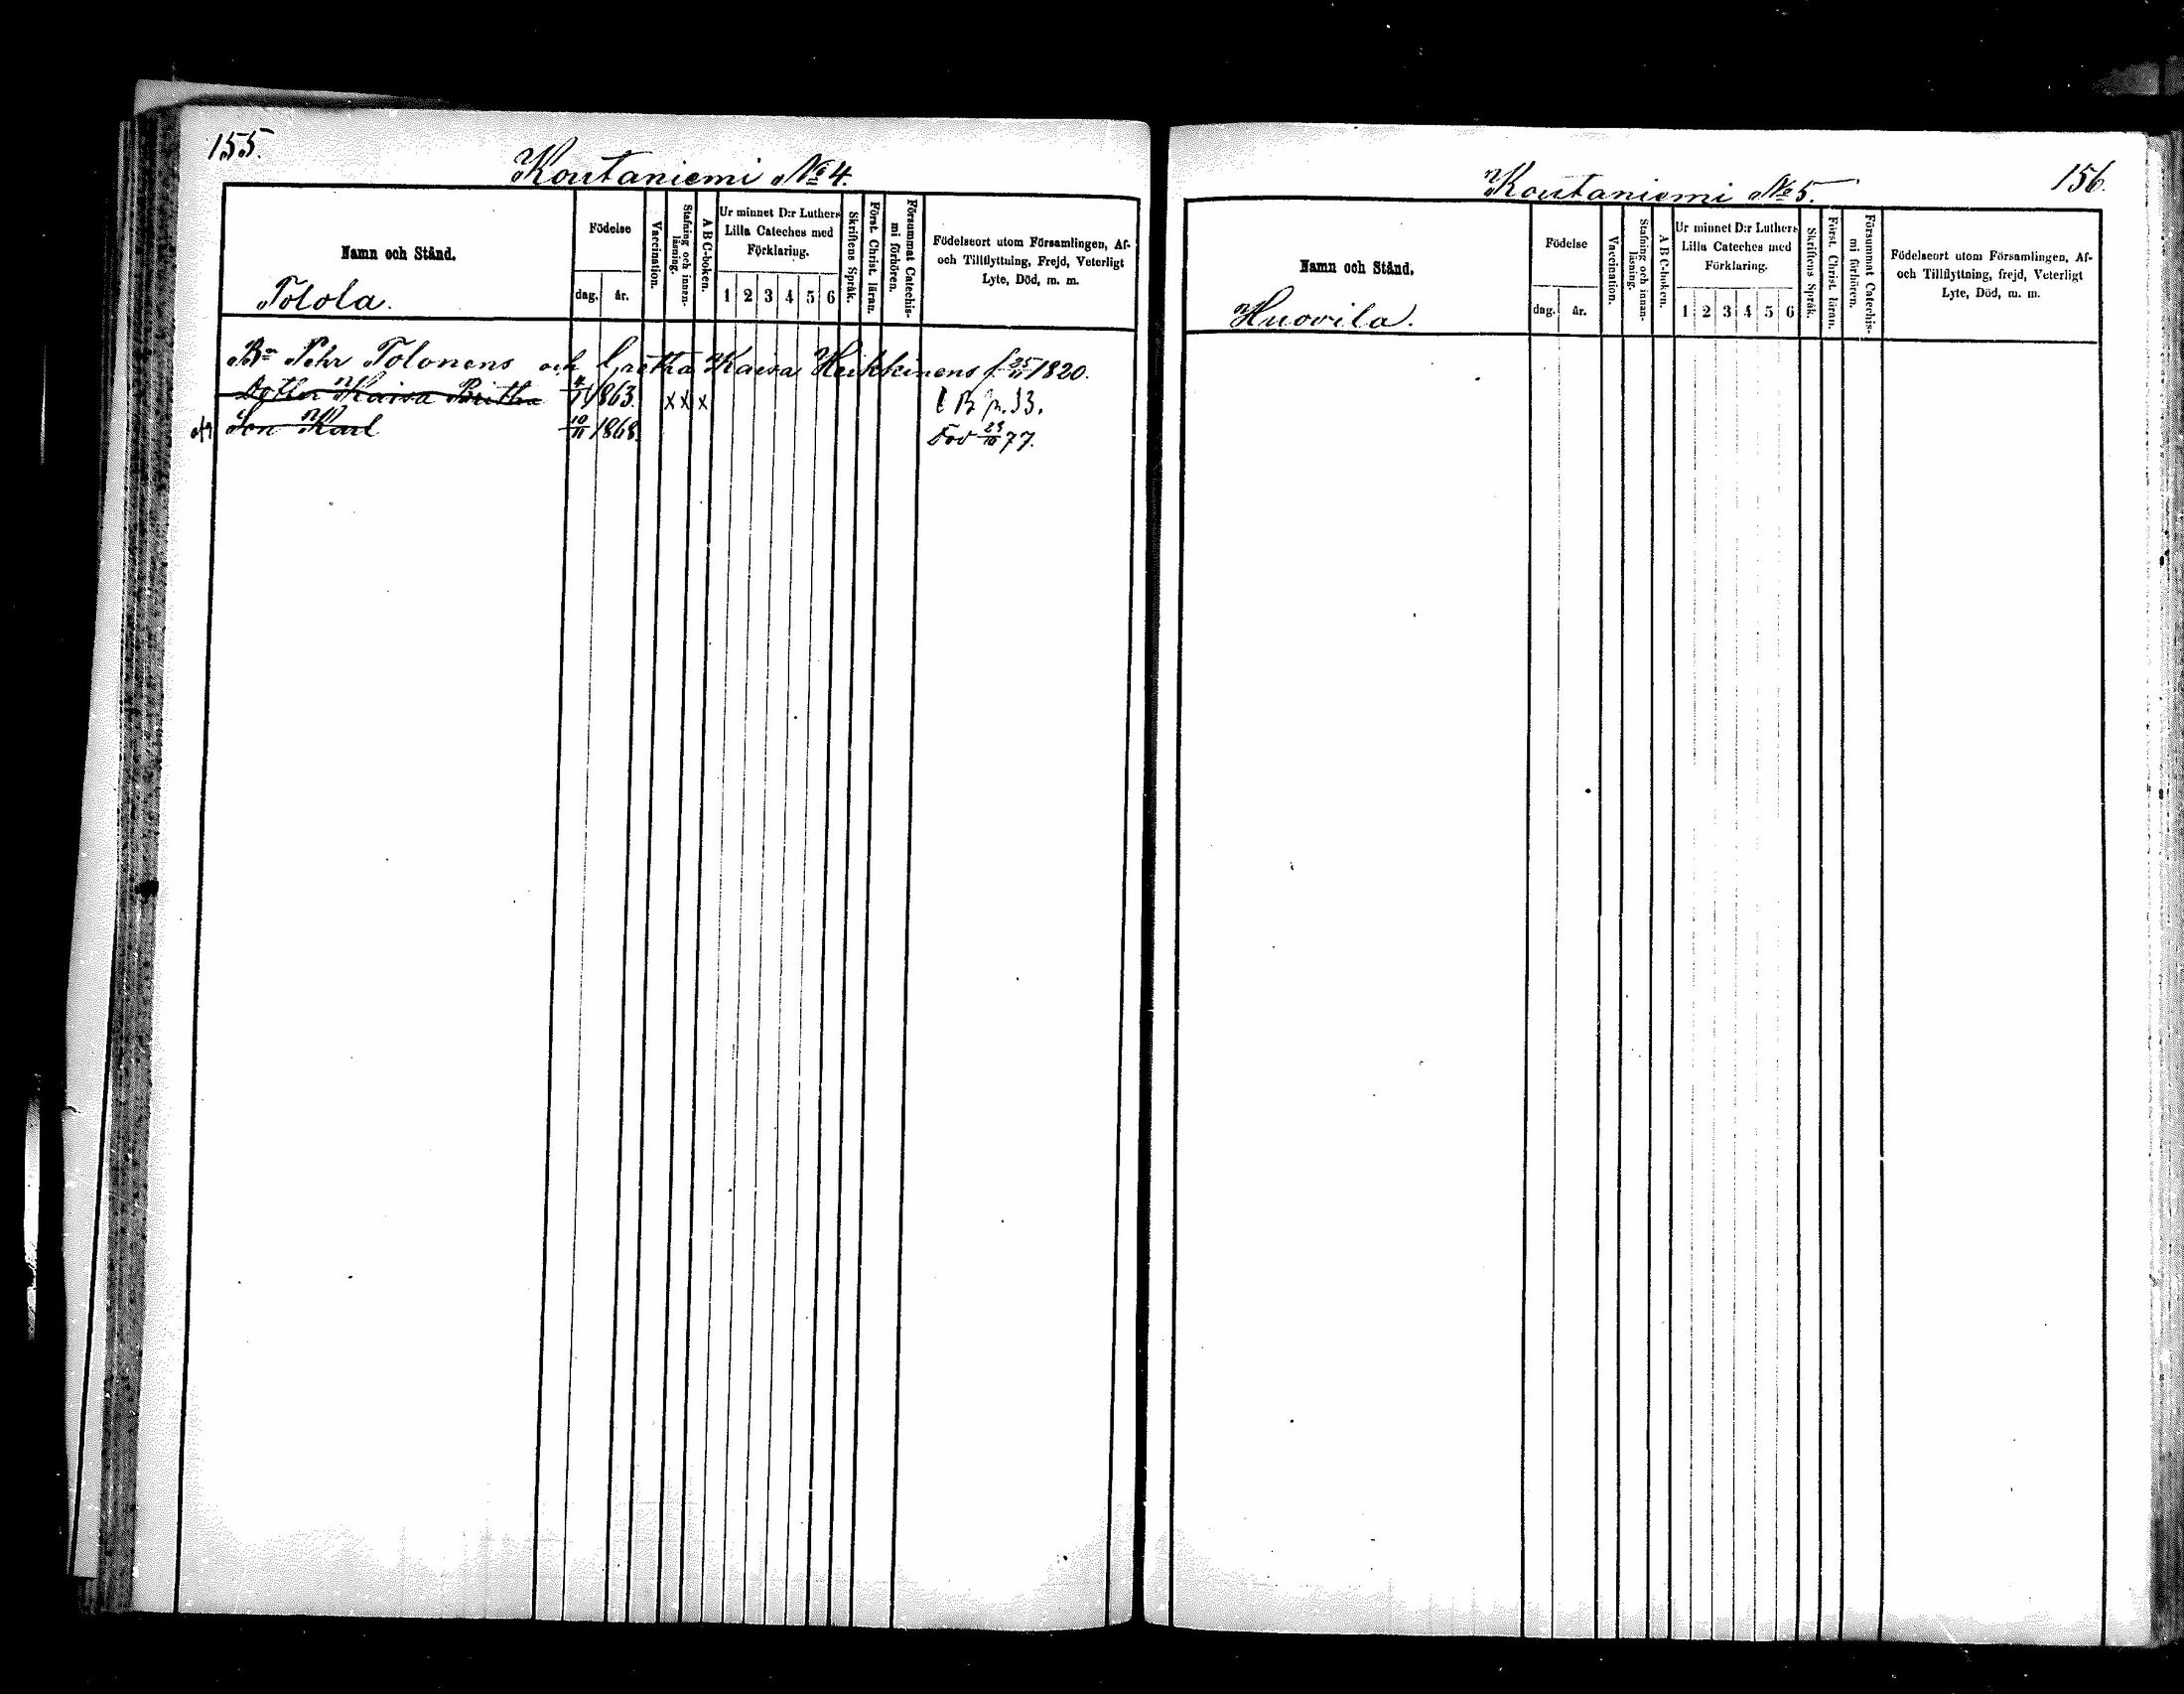 155.
Koutaniemi No 4.
Namn och Stånd.
Tolola.
Födelse
dag. år.
Vaccination.
Stafning och innan-
läsning.
A B C-boken.
Ur minnet D:r Luthers
Lilla Cateches med
Förklaring.
1 2 3 4 5 6
Skriftens Språk.
Först. Christ. läran.
Försummat Catechis-
mi förhören.
Födelseort utom Församlingen, Af-
och Tillflyttning, Frejd, Veterligt
Lyte, Död, m. m.
Bn Pehr Tolonens och Gretha Kaisa Heikkinens f. 25/11 1820.
Dotter Kaisa Britha 1863. x x x B p. 33.
Son Karl 10/11 1868. Död 23/10 77.
156.
Koutaniemi No 5.
Namn och Stånd.
Huovila.
Födelse
dag. år.
Vaccination.
Stafning och innan-
läsning.
A B C-boken.
Ur minnet D:r Luthers
Lilla Cateches med
Förklaring.
1 2 3 4 5 6
Skriftens Språk.
Först. Christ. läran.
Försummat Catechis-
mi förhören.
Födelseort utom Församlingen, Af-
och Tillflyttning, frejd, Veterligt
Lyte, Död, m. m.